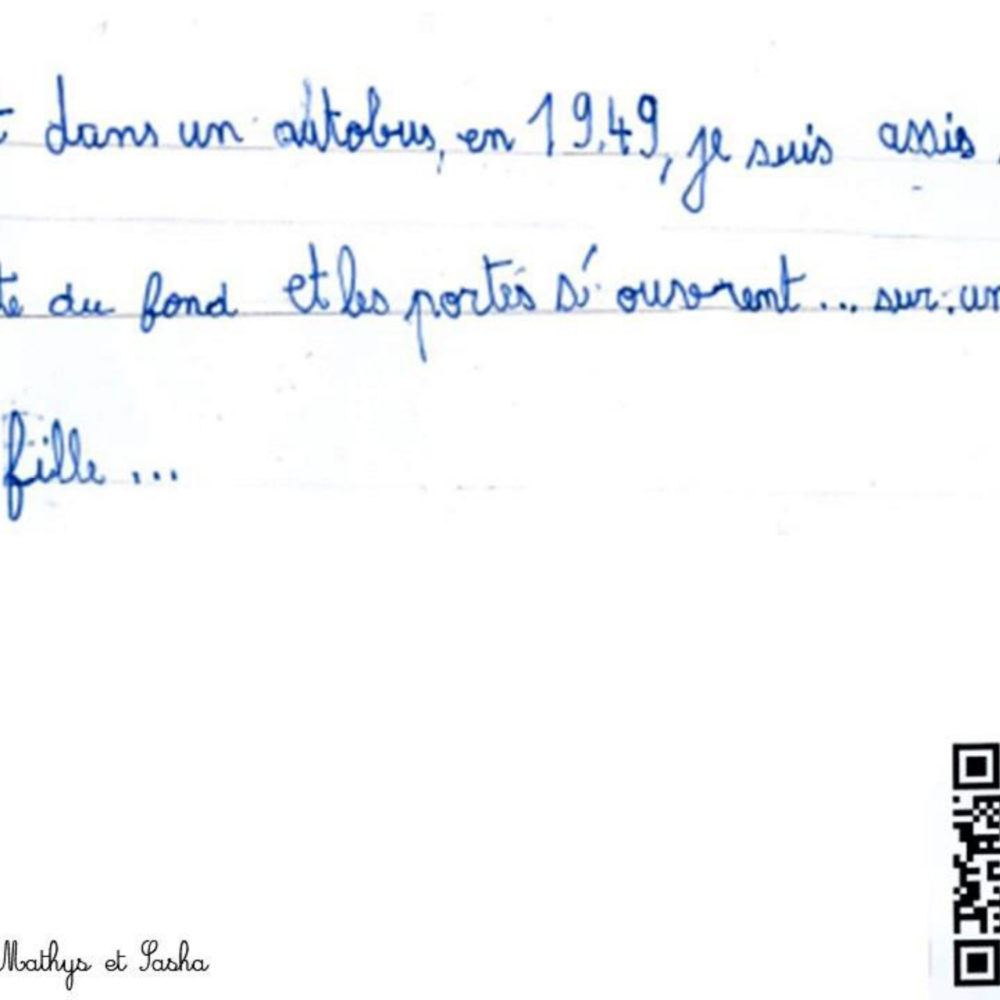 dans un autobus, en 1949, je suis assis
du fond et les portes s'ouvrent... sur un
fille...
Mathys et Sasha